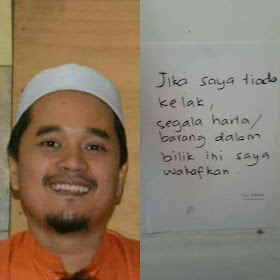 Jika saya tiada
kelak,
segala harta/
barang dalam
bilik ini saya
wakafkan.